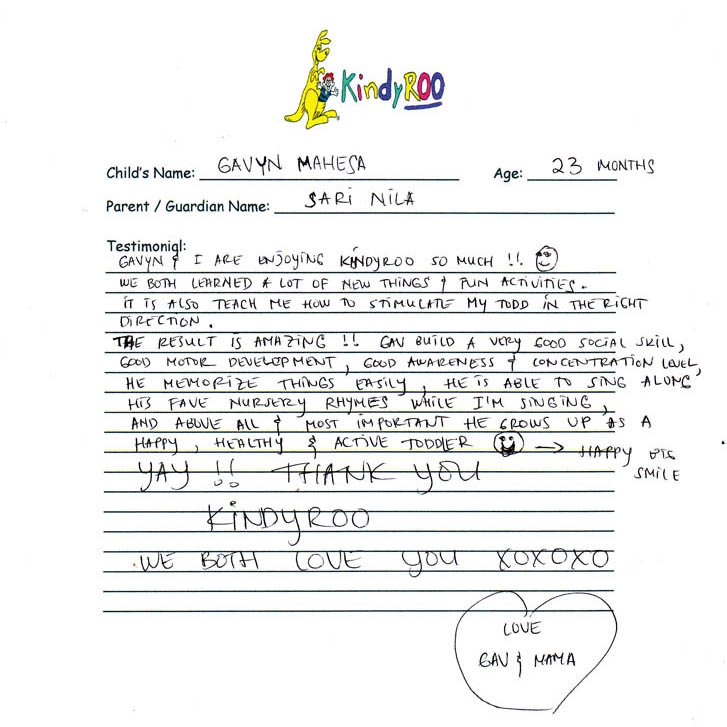 KindyROO
Child's Name: GAVYN MAHESA Age: 23 MONTHS
Parent / Guardian Name: SARI NILA
Testimonial:
GAVYN & I ARE ENJOYING KINDYROO SO MUCH !!
WE BOTH LEARNED A LOT OF NEW THINGS & FUN ACTIVITIES.
IT IS ALSO TEACH ME HOW TO STIMULATE MY TODD IN THE RIGHT
DIRECTION.
THE RESULT IS AMAZING !! GAV BUILD A VERY GOOD SOCIAL SKILL,
GOOD MOTOR DEVELOPMENT, GOOD AWARENESS & CONCENTRATION LEVEL,
HE MEMORIZE THINGS EASILY, HE IS ABLE TO SING ALONG
HIS FAVE NURSERY RHYMES WHILE I'M SINGING,
AND ABOVE ALL & MOST IMPORTANT HE GROWS UP AS A
HAPPY, HEALTHY & ACTIVE TODDLER → HAPPY BIG
SMILE
YAY !! THANK YOU
KINDYROO
WE BOTH LOVE YOU XOXOXO
LOVE
GAV & MAMA